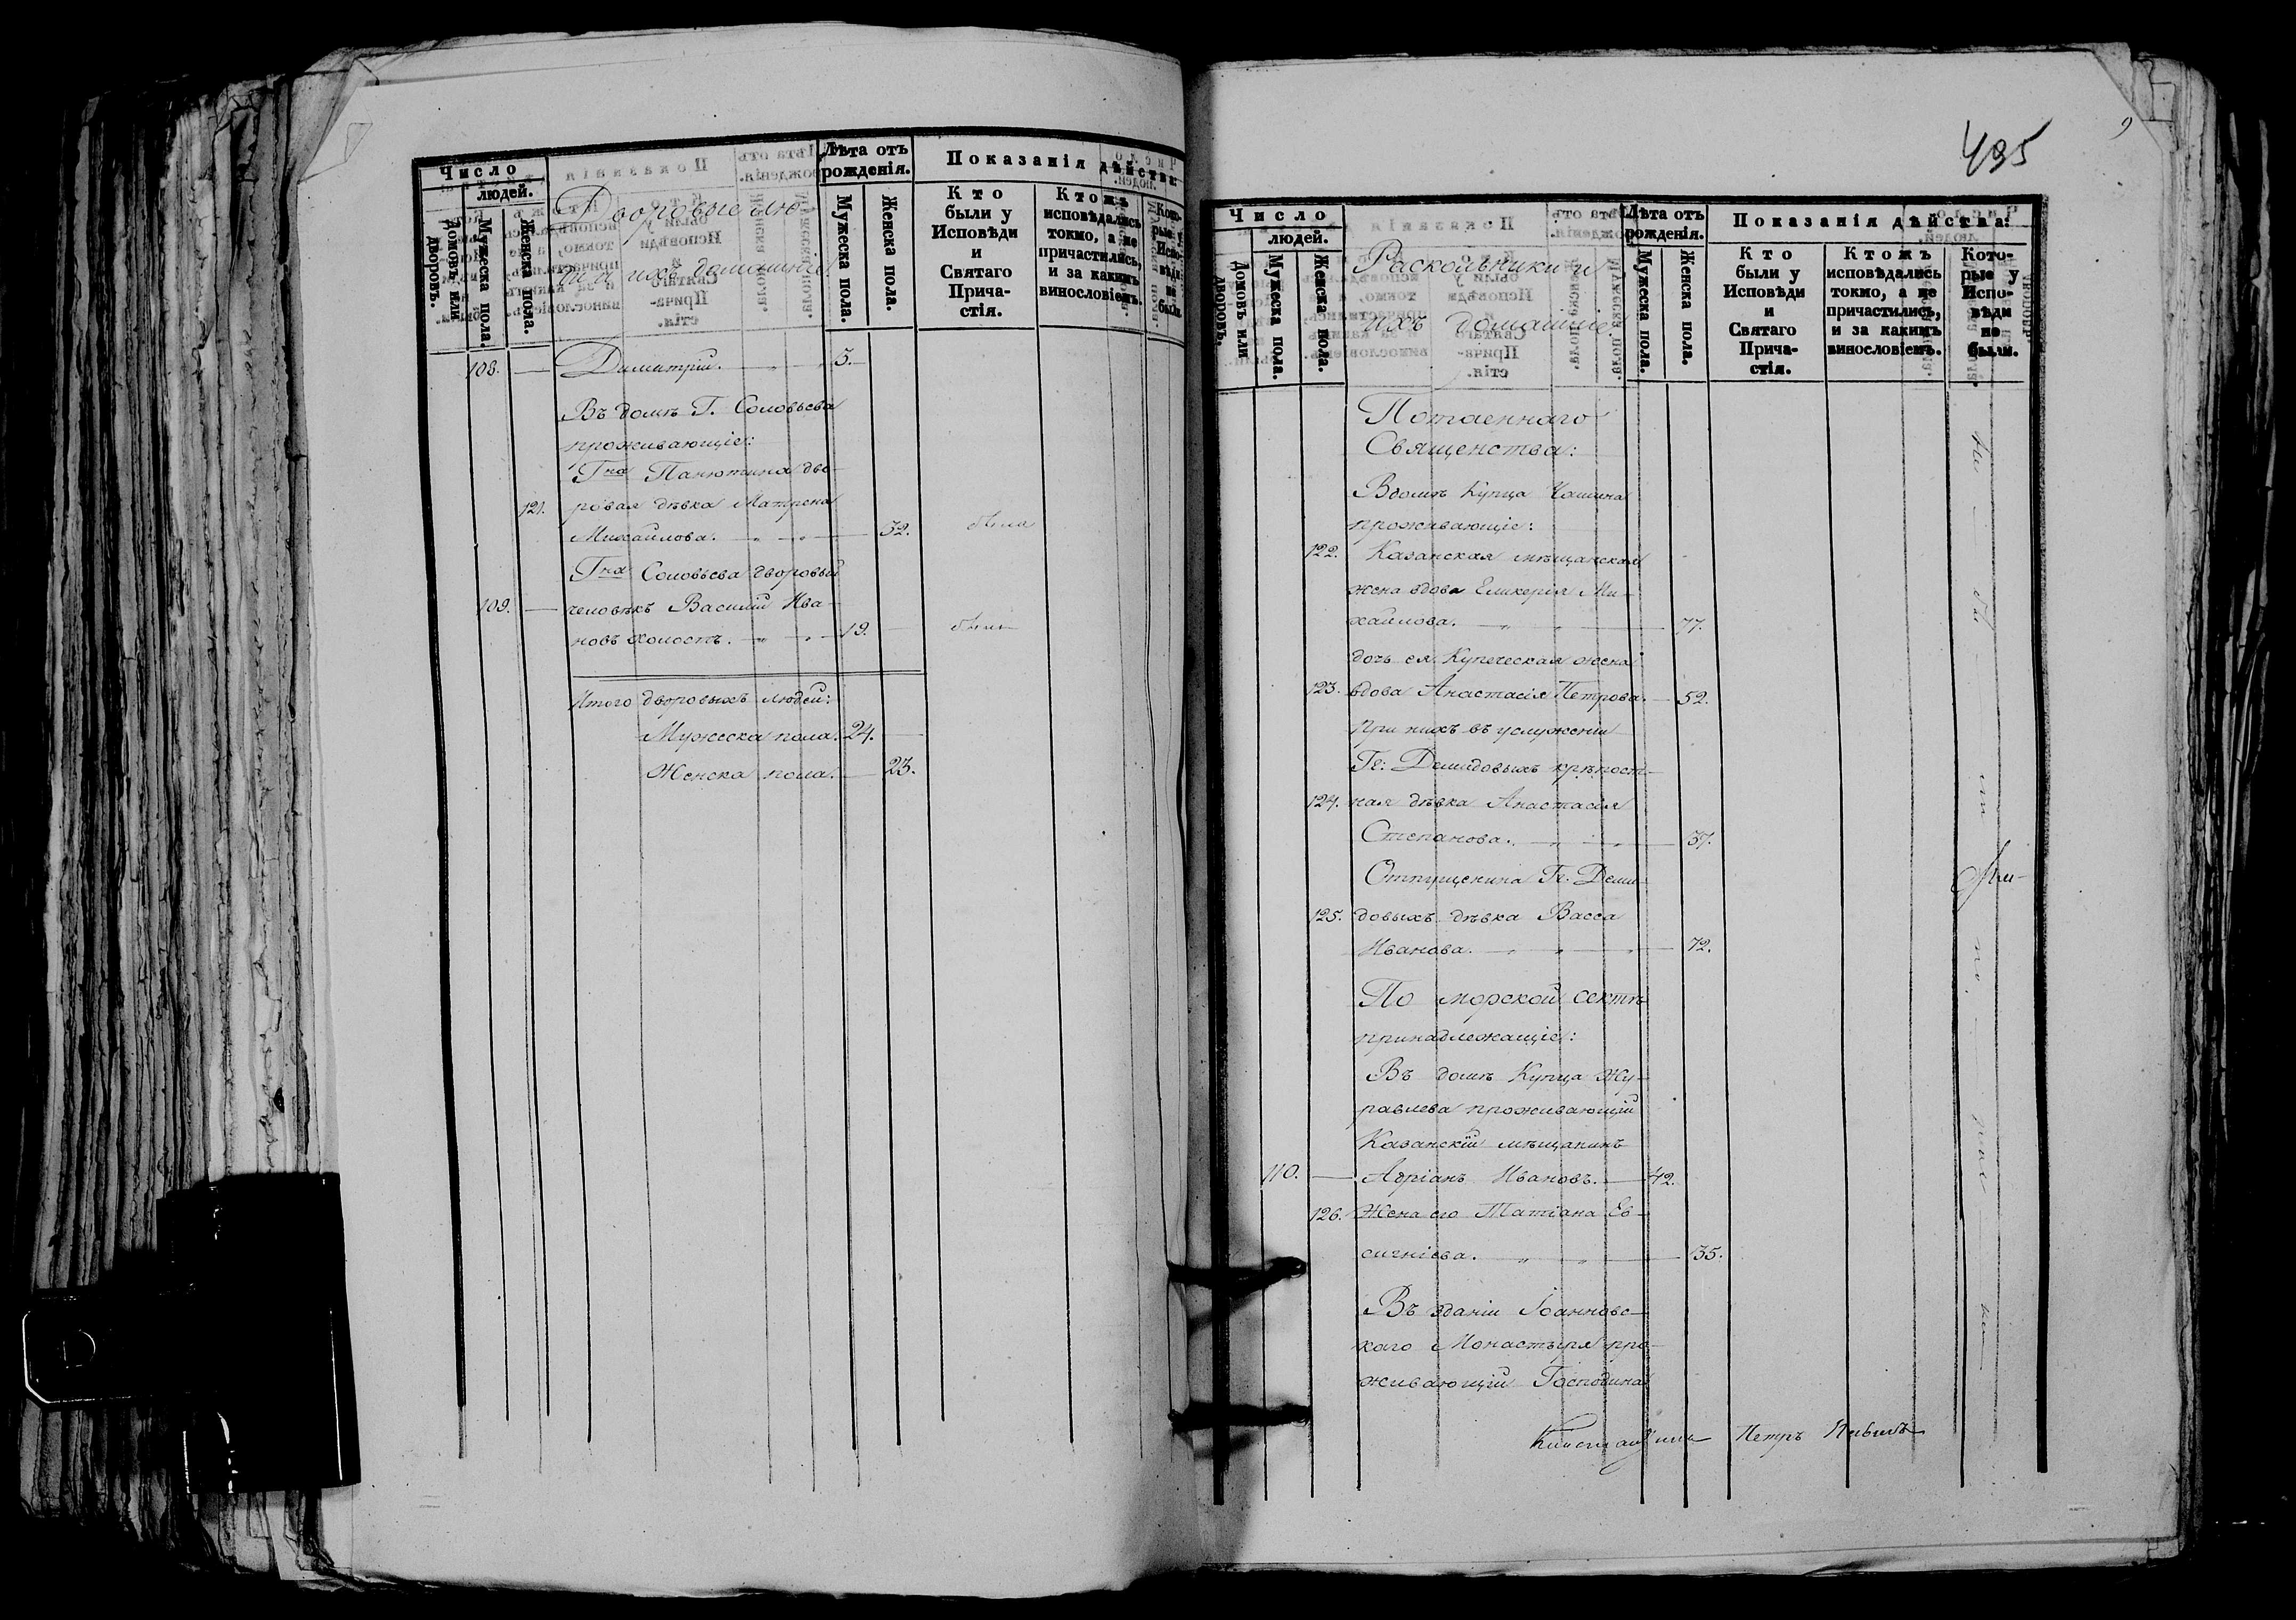 Число
людей.
Домовъ или дворовъ.
Мужеска пола.
Женска пола.
Дворовые лю-
ди и ихъ домашніе.
Лѣта отъ рожденія.
Мужеска пола.
Женска пола.
Показанія дѣйства:
Кто были у Исповѣди и Святаго Прича-стія.
Ктожъ исповѣдались токмо, а не причастились, и за какимъ винословіемъ.
Кото-рые у Испо-вѣди не были.
108. — Димитрій. 5.
Въ домѣ Г. Соловьева
проживающіе:
Гна Панютина дво-
121. ровая дѣвка Матрена
Михайлова. 32. была
Гна Соловьева дворовый
109. — человѣкъ Василій Ива-
новъ холостъ. 19. — былъ
Итого дворовыхъ людей:
Мужеска пола. 24. —
Женска пола. — 23.
495
Число
людей.
Домовъ или дворовъ.
Мужеска пола.
Женска пола.
Раскольники и
ихъ домашніе.
Лѣта отъ рожденія.
Мужеска пола.
Женска пола.
Показанія дѣйства:
Кто были у Исповѣди и Святаго Прича-стія.
Ктожъ исповѣдались токмо, а не причастились, и за какимъ винословіемъ.
Кото-рые у Испо-вѣди не были.
Потаеннаго
Священства:
Вдомѣ Купца Чашина
проживающіе:
122. Казанская мѣщанская
жена вдова Гликерія Ми-
хайлова. 77.
дочь ея Купеческая жена
123. вдова Анастасія Петрова. — 52.
При нихъ въ услуженіи
Гг. Демидовыхъ крѣпост-
124. ная дѣвка Анастасія
Степанова. 37.
Отпущенина Гг. Деми-
125. довыхъ дѣвка Васса
Иванова. 72.
По морской сектѣ
принадлежащіе:
Въ домѣ Купца Жу-
равлева проживающій
Казанскій мѣщанинъ
110. — Адріанъ Ивановъ. — 42.
126. Жена его Татіана Ев-
сигніева. 35.
Въ зданіи Іоанновс-
каго Монастыря про-
живающій Господина
Петръ